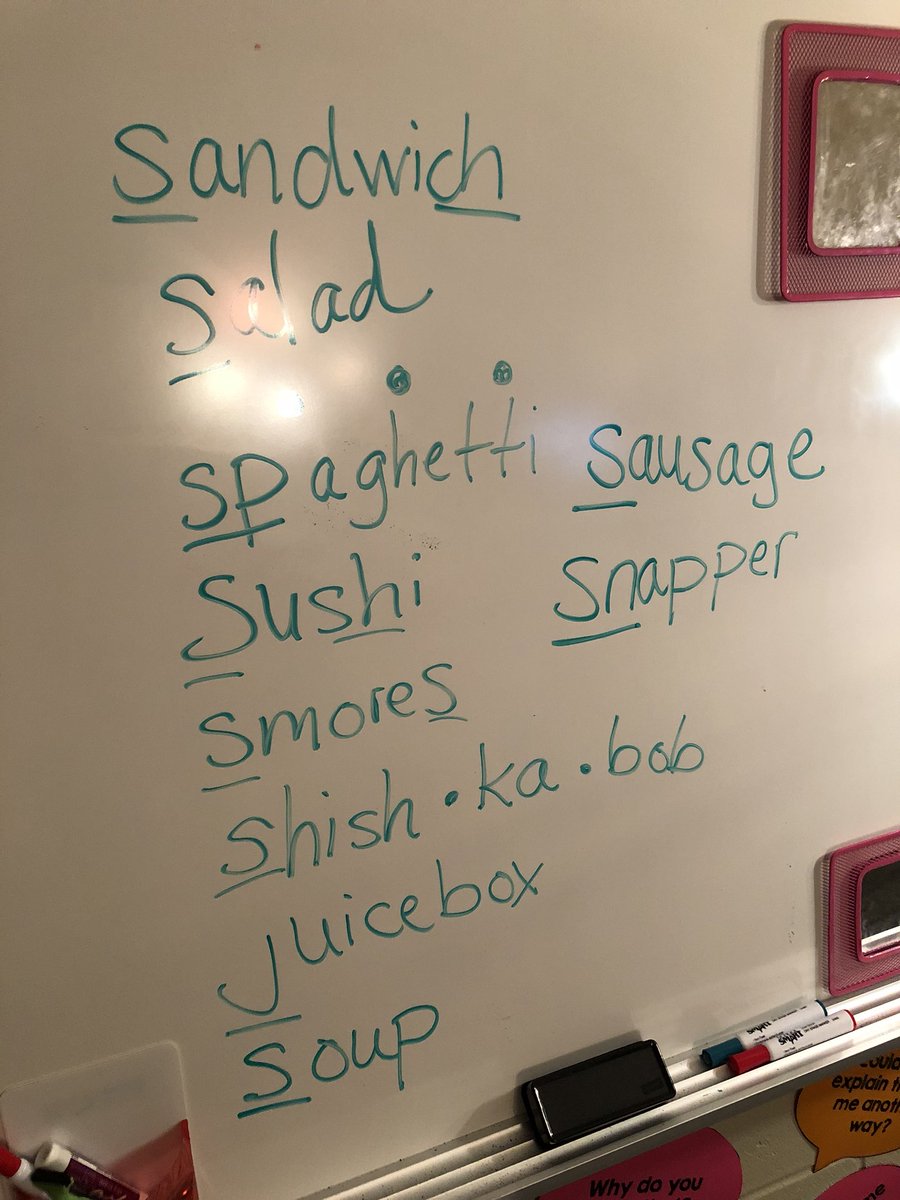 Sandwich
Salad
spaghetti
sausage
Sushi
snapper
smores
shish·ka·bob
juicebox
soup
SMART
SMART
explain
me
way?
Why do you